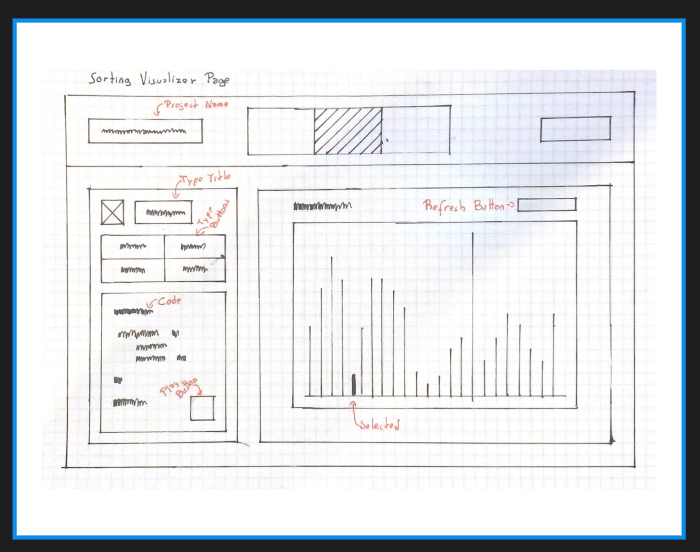 Sorting Visualizer Page
Project Name
Type Title
Type
Buttons
Refresh Button
Code
Play
Button
Selected